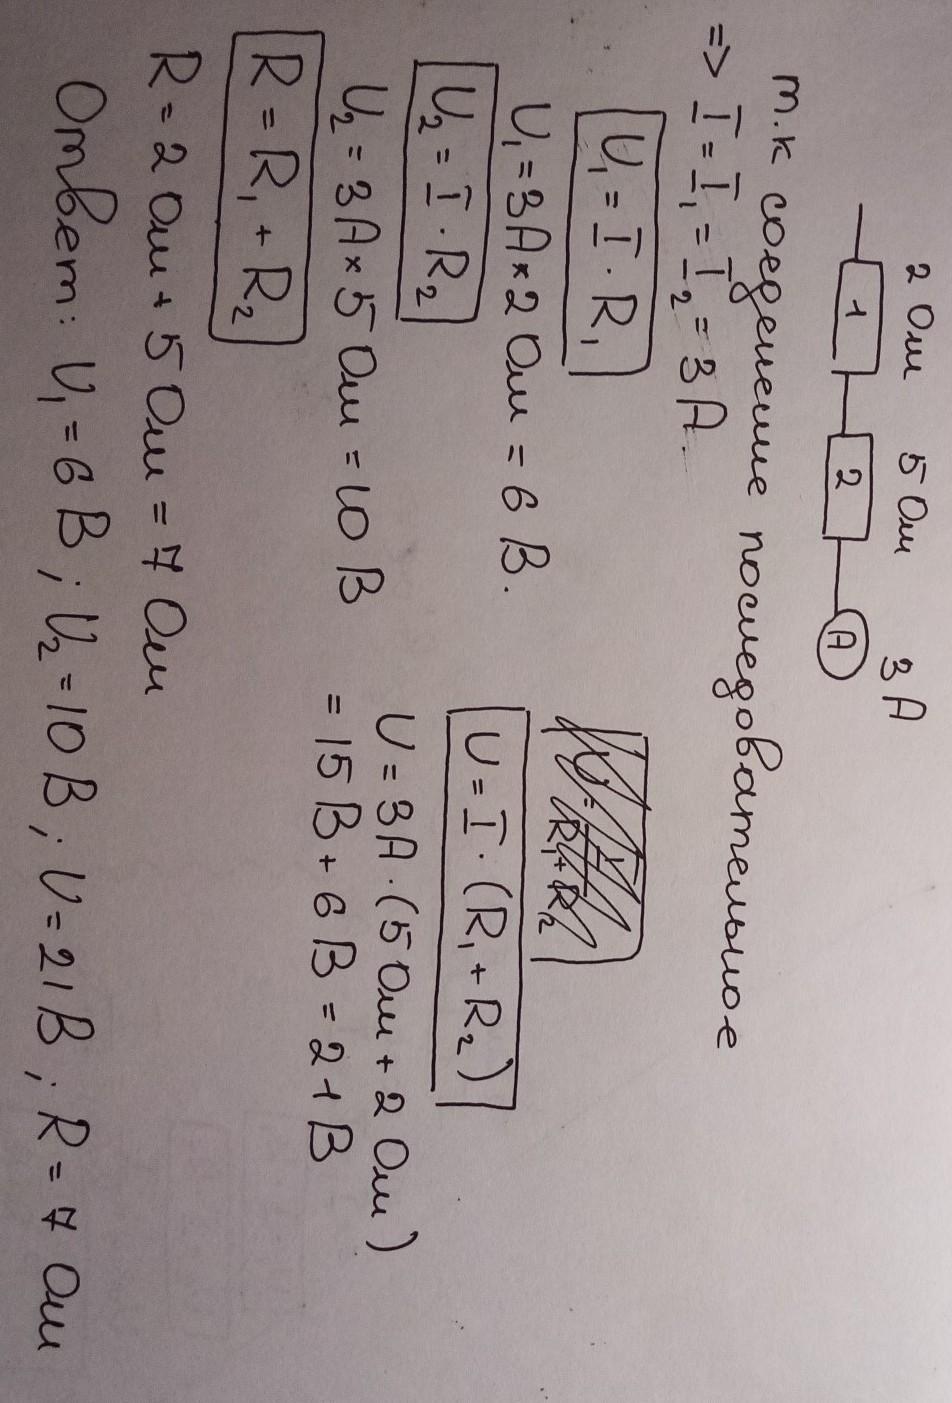 2 Ом 5 Ом 3 А
1 2 А
т.к соединение последовательное
=> I = I₁ = I₂ = 3 А.
U₁ = I · R₁
U₁ = 3А × 2 Ом = 6 В.
U₂ = I · R₂
U₂ = 3А × 5 Ом = 10 В
R = R₁ + R₂
R = 2 Ом + 5 Ом = 7 Ом
U = I · (R₁ + R₂)
U = 3А · (5 Ом + 2 Ом)
= 15 В + 6 В = 21 В
Ответ: U₁ = 6 В ; U₂ = 10 В ; U = 21 В ; R = 7 Ом